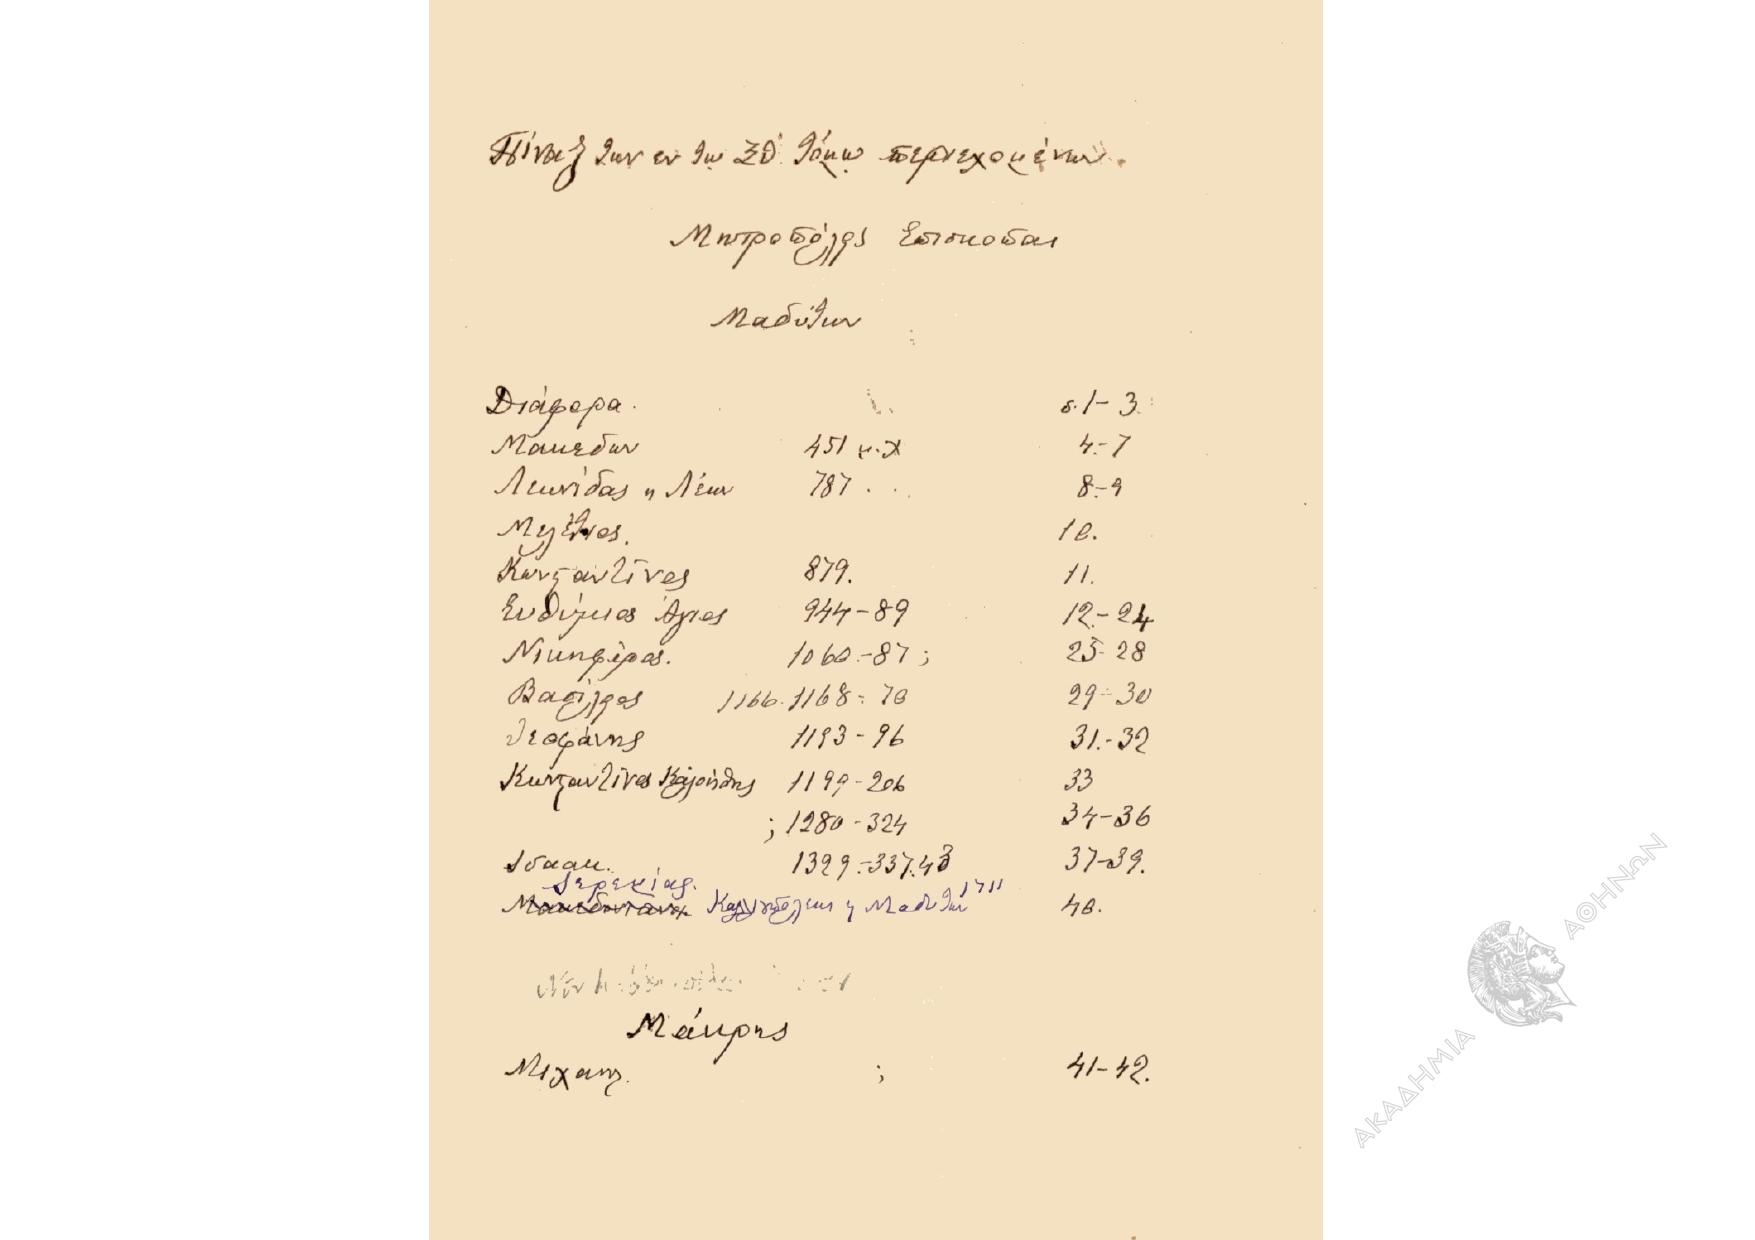 Πίναξ των εν τω ΞΘ' τόμω περιεχομένων.
Μητροπόλεις Επισκοπαι
Μαδύτων
Διάφορα. σ. 1-3
Μακεδων 451 μ.Χ 4-7
Λεωνίδας η Λέων 787 . . . 8-9
Μελέτιος. 10.
Κωνσταντίνος 879. 11.
Ευθύμιος Άγιος 944-89 12-24
Νικηφόρος. 1060-87; 25-28
Βασίλειος 1166. 1168-70 29-30
Θεοφάνης 1193-96 31.-32
Κωνσταντίνος 1199-206 33
; 1280-324 34-36
Ισαακ. 1329-337.43 37-39.
Ιερεμίας.
Καλλιπόλεως η Μαδύτων 1711 40.
Μάκρης
Μιχαηλ. ; 41-42.
ΑΚΑΔΗΜΙΑ ΑΘΗΝΩΝ